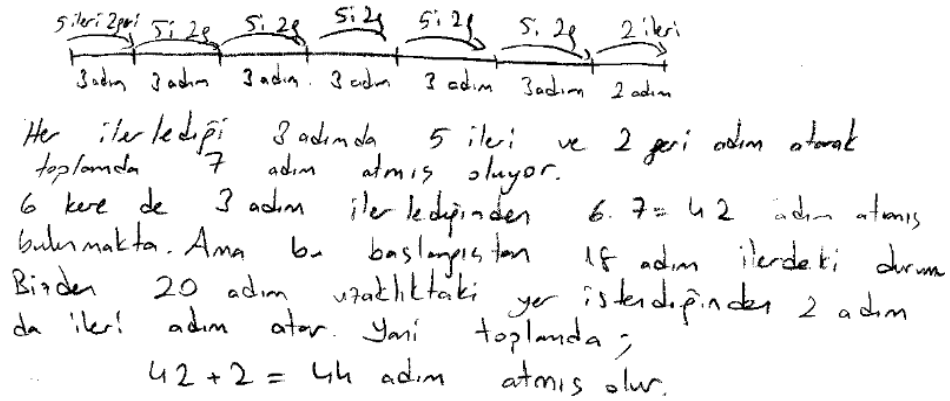 5 ileri 2geri 5i 2g 5i 2g 5i 2g 5i 2g 5i 2g 2 ileri
3 adım 3 adım 3 adım. 3 adım 3 adım 3 adım 2 adım
Her ilerlediği 3 adımda 5 ileri ve 2 geri adım atarak
toplamda 7 adım atmış oluyor.
6 kere de 3 adım ilerlediğinden 6.7=42 adım atmış
bulunmakta. Ama bu başlangıçtan 18 adım ilerdeki durum
Bizden 20 adım uzaklıktaki yer istendiğinden 2 adım
da ileri adım atar. Yani toplamda;
42 + 2 = 44 adım atmış olur.